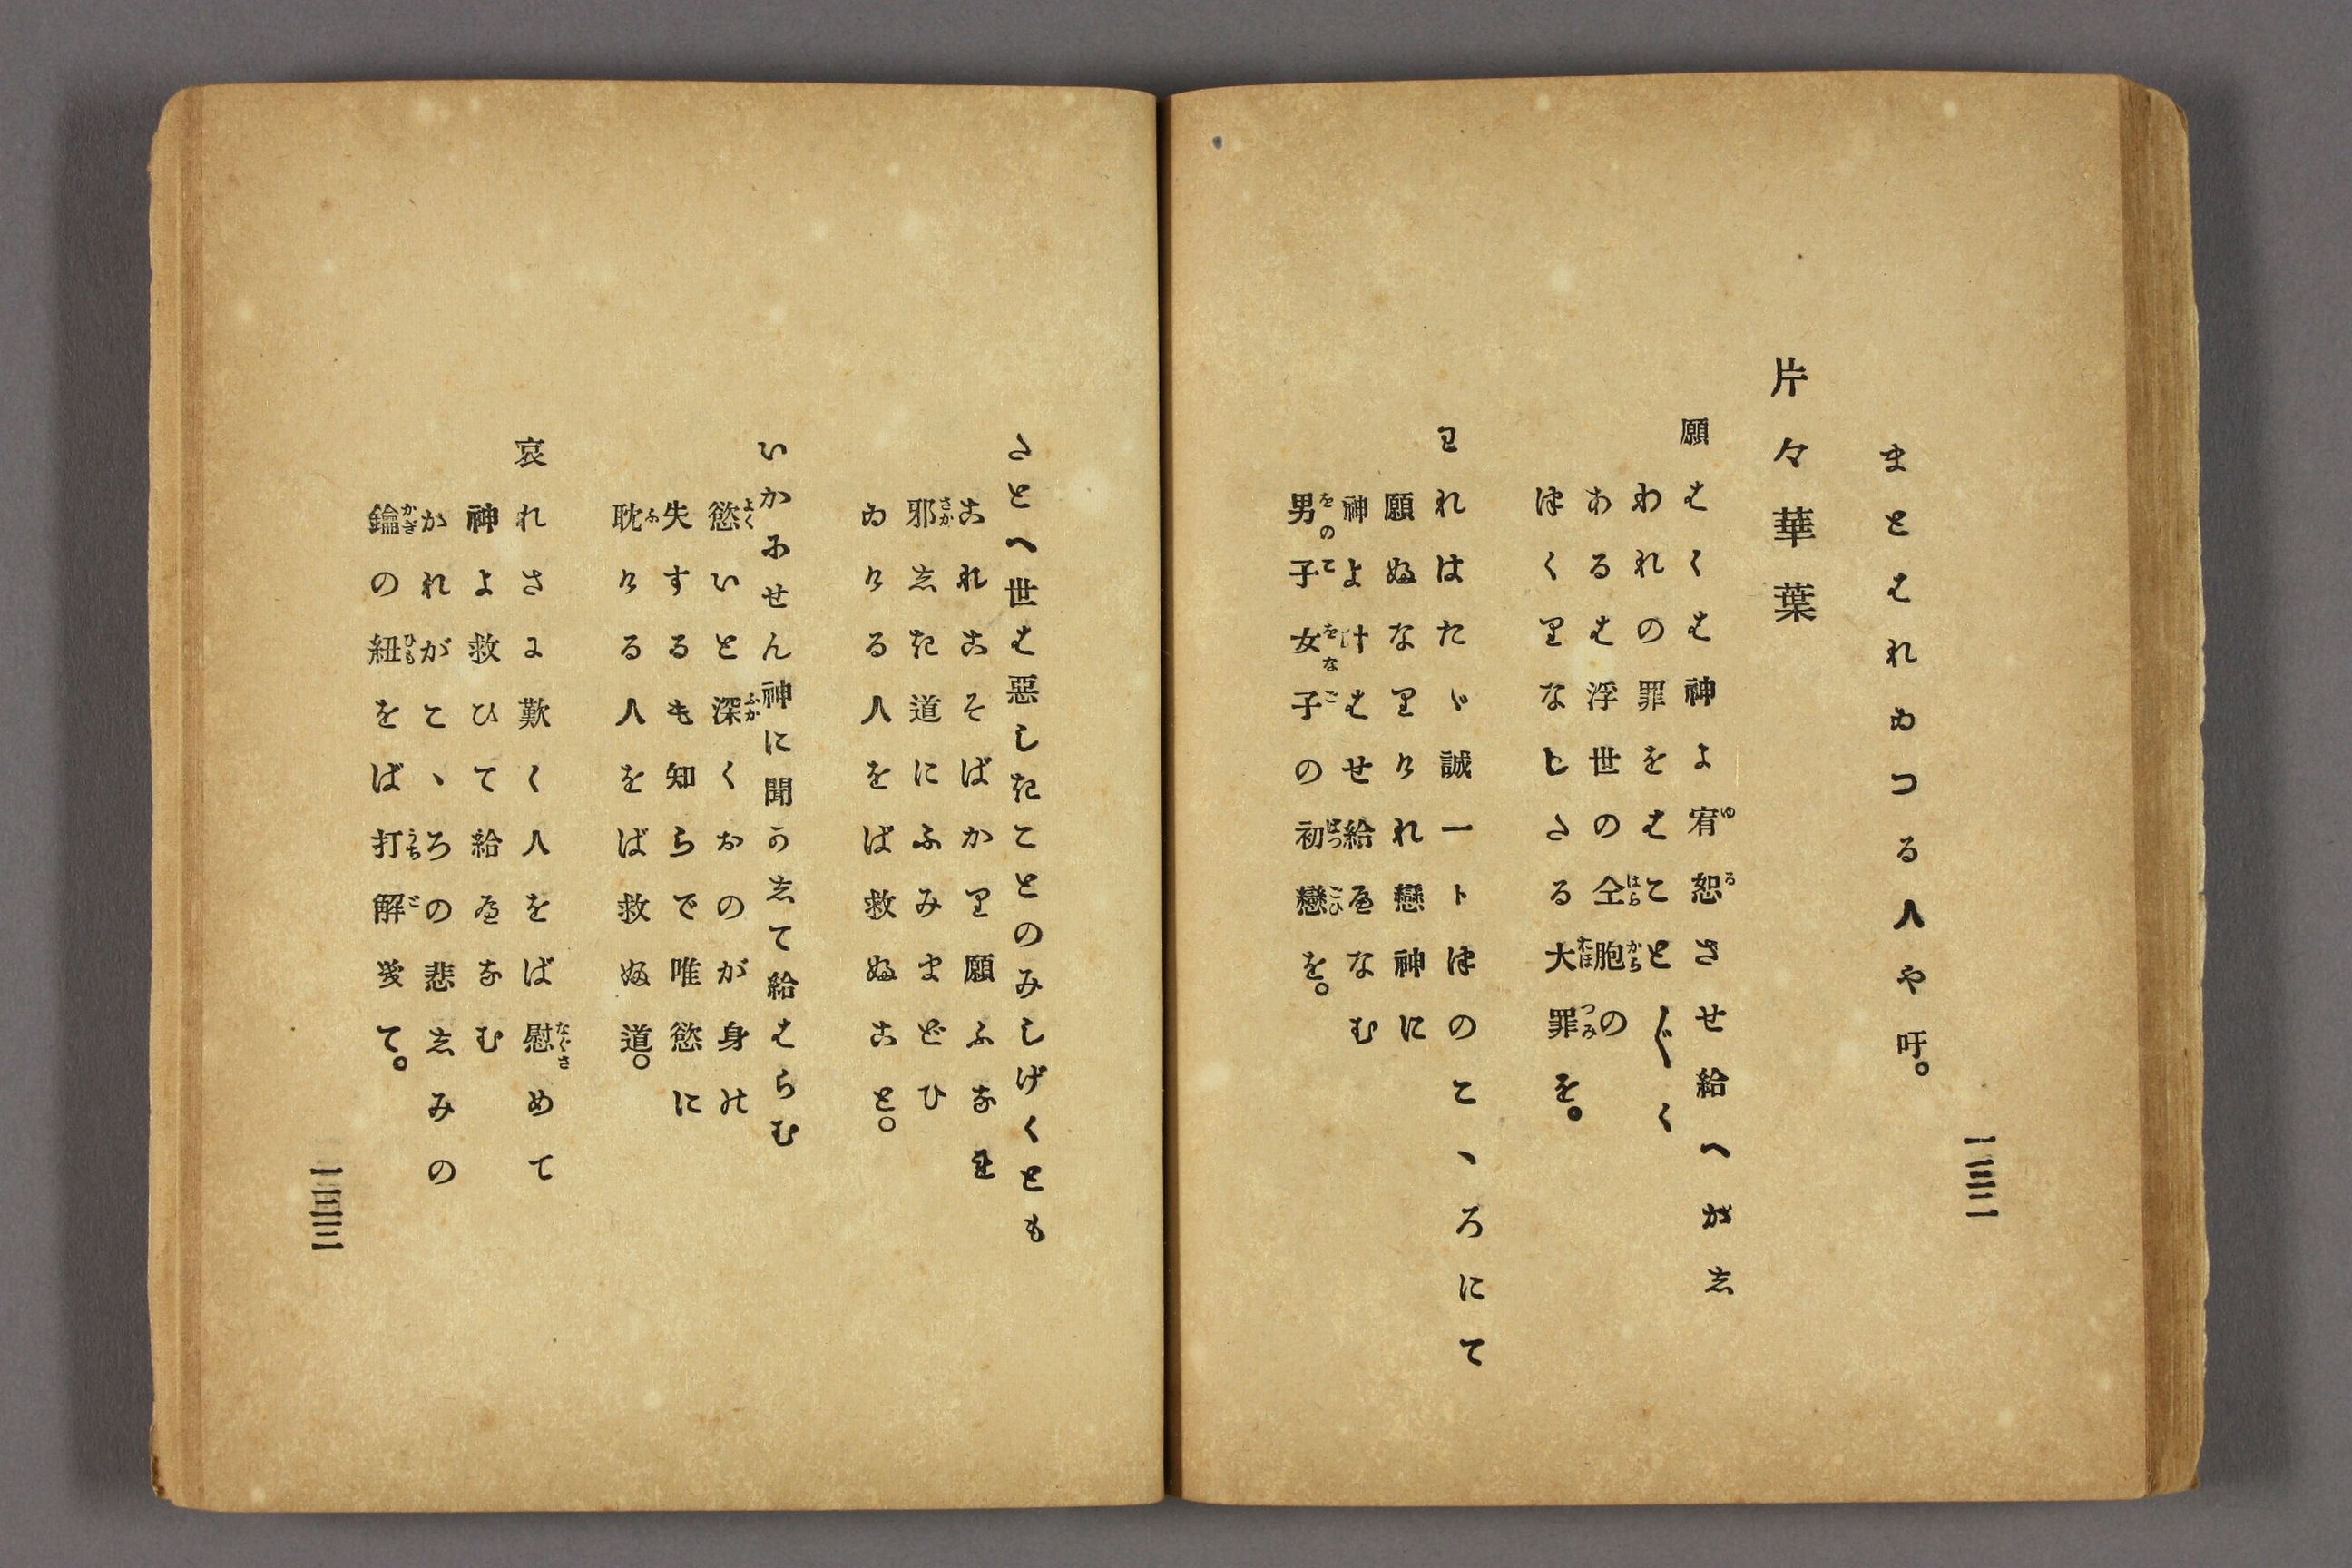 まとはれゐつる人や吁。
片々華葉
願はくは神よ宥恕させ給へかし
われの罪をはこと〲く
あるは浮世の仝胞の
つくりなしたる大罪を。
われはたゞ誠一トつのこゝろにて
願ぬなりけれ戀神に
神よ叶はせ給ゑなむ
男子女子の初戀を。
一三二
たとへ世は惡しきことのみしげくとも
これこそばかり願ふなり
邪しき道にふみまどひ
ゐける人をば救ぬこと。
いかにせん神に聞かして給はらむ
慾いと深くおのが身の
失するも知らで唯慾に
耽ける人をば救ぬ道。
哀れさに歎く人をば慰めて
神よ救ひて給ゑなむ
かれがこゝろの悲しみの
鑰の紐をば打解きて。
一三三